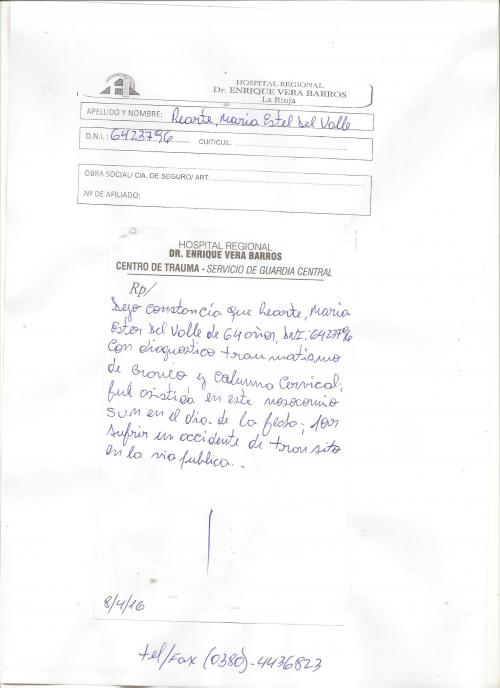 HOSPITAL REGIONAL
Dr. ENRIQUE VERA BARROS
La Rioja
APELLIDO Y NOMBRE: Rearte, Maria Estel Del Valle
D.N.I.: 6423796 CUIT/CUIL:
OBRA SOCIAL/ CIA. DE SEGURO/ ART.
Nº DE AFILIADO:
HOSPITAL REGIONAL
DR. ENRIQUE VERA BARROS
CENTRO DE TRAUMA - SERVICIO DE GUARDIA CENTRAL
Rp/
Dejo constancia que Rearte, Maria
Ester Del Valle de 64 años, DNI: 6423796
con diagnostico traumatismo
de Craneo y Columna Cervical;
fue asistida en este nosocomio
en el dia de la fecha; por
sufrir un accidente de transito
en la via publica..
8/4/16
tel/Fax (0380)-4436823